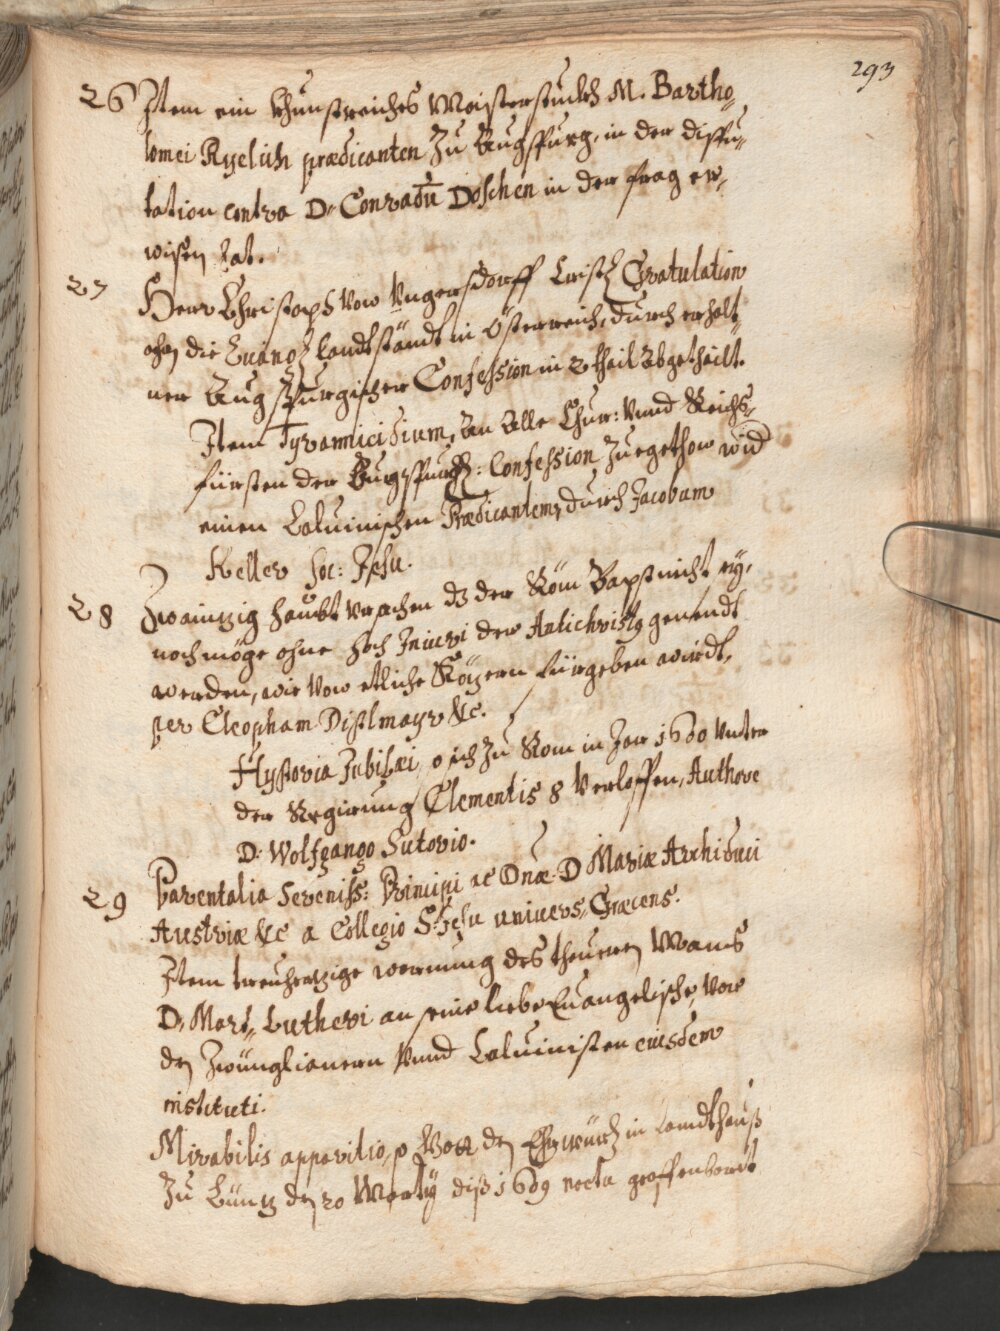 293
26 Item ein Khunstreiches Maisterstuckh M. Bartho„
lomei Ryelich prædicanten Zu Augspurg, in der dispu„
tation contra D. Conradū Doschen in der frag er„
wisen hat.
27 Herr Christoph von Ungersdorff Gratulation
die Euangl. landtständt in Österreich, durch erhalt„
ner Augspurgischer Confession in 2 theil Abgetheilt.
Item Tyrannicidium, An Alle Chur: Vnnd Reichs„
fürsten der Augspurg: Confession Zuegethon wid
einen Caluinischen Prædicantem, durch Jacobum
Keller Soc: Jesu.
28 Zwaintzig haubt Vrsachen dz der Röm Bapst nicht sey,
noch möge ohne hoch Iniuri der Antichrist9 genendt
werden, wie von etliche Közern fürgeben wirdt,
per Cleopham Distlmayr &c.
Hystoria Jubilæi, so sich Zu Rom in Jar 1600 Vnter
der Regierung Clementis 8 Verloffen, Authore
D. Wolfgango Sutorio.
29 Parentalia Sereniss: Principi ac Dnæ. D Mariæ Archiduci
Austriæ &c a Collegio S. Jesu univers. Græcens.
Item treuhertzige wernung des theuren Mans
D. Mart. Lutheri an seine liebe Euangelische, von
den Zwinglianern Vnnd Caluinisten eiusdem
instituti.
Mirabilis apparitio, so Von den in Landthauß
Zu Lüntz den 20 Marty diß 1609 nocta geoffenbart